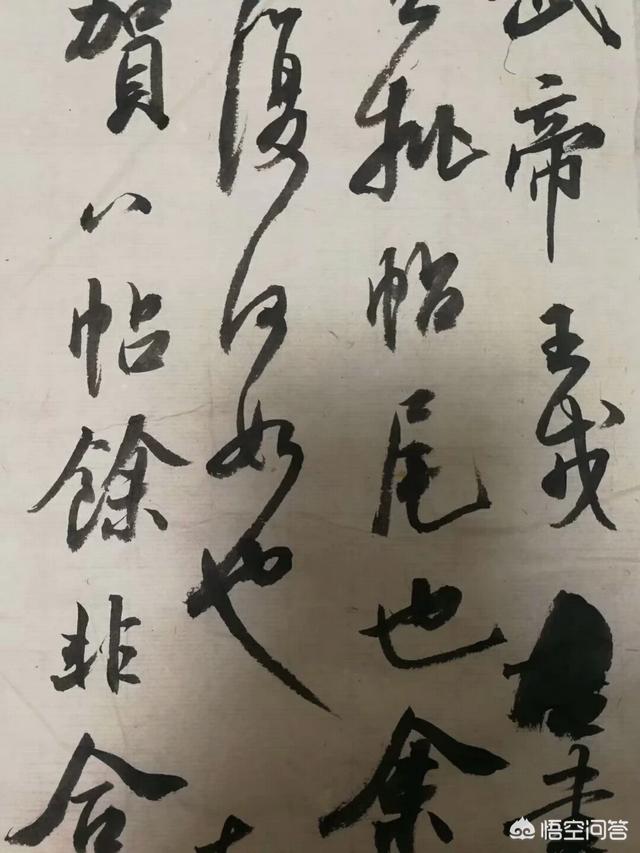 武帝王戎書
批帖尾也余
復何如也
賀八帖餘非合
悟空问答